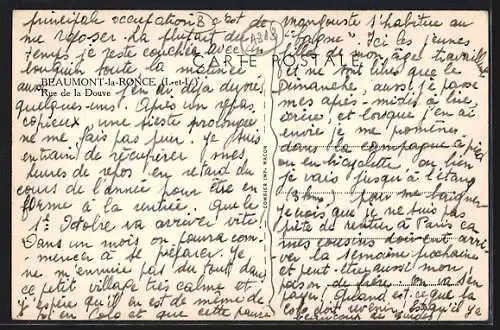 principale occupation 8 c'est de
me reposer. La plupart du
temps je reste couchée avec un
bouquin toute la matinée
CARTE POSTALE
BEAUMONT-la-RONCE (I.-et-L.)
Rue de la Douve
j'en ai déjà
quelques-uns. Après un repas
copieux une sieste prolongée
ne me fait pas peur. Je suis
en train de récupérer mes
heures de repos en retard du
cours de l'année pour être en
forme à la rentrée. Que le
1er Octobre va arriver vite
Dans un mois on pourra com-
mencer à se préparer. Je
ne m'ennuie pas du tout dans
ce petit village très calme et
j'espère qu'il en est de même de
toi en Colo et que cette
COMBIER IMP. MACON
s'habitue au
Ici les jeunes
filles de mon âge travaillent
et ne sont libres que le
Dimanche, aussi je passe
mes après-midis à lire,
et lorsque j'en ai
envie je me promène
dans la campagne à pied
ou en bicyclette ou bien
je vais jusqu'à l'étang
(3 kms) pour me baigner
Je crois que je ne suis pas
prête de rentrer à Paris car
mes cousins doivent arri-
ver la semaine prochaine
et peut-être aussi mon
on va s'en
payer. Quand est-ce que la
colo doit revenir